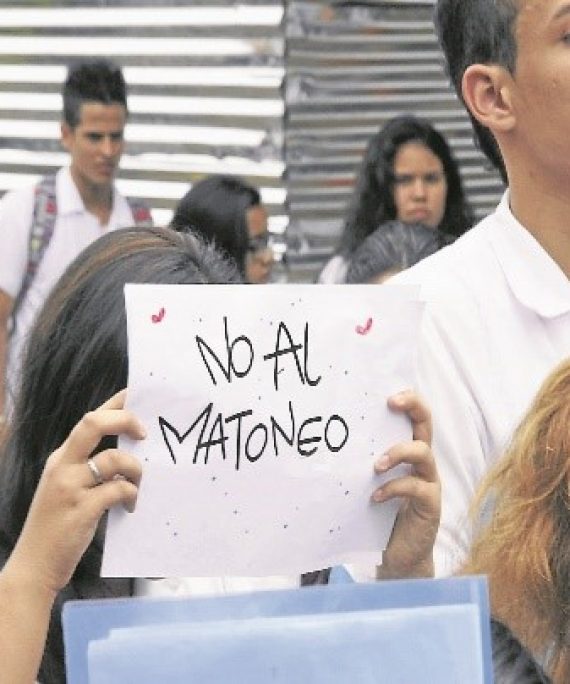 NO AL
MATONEO